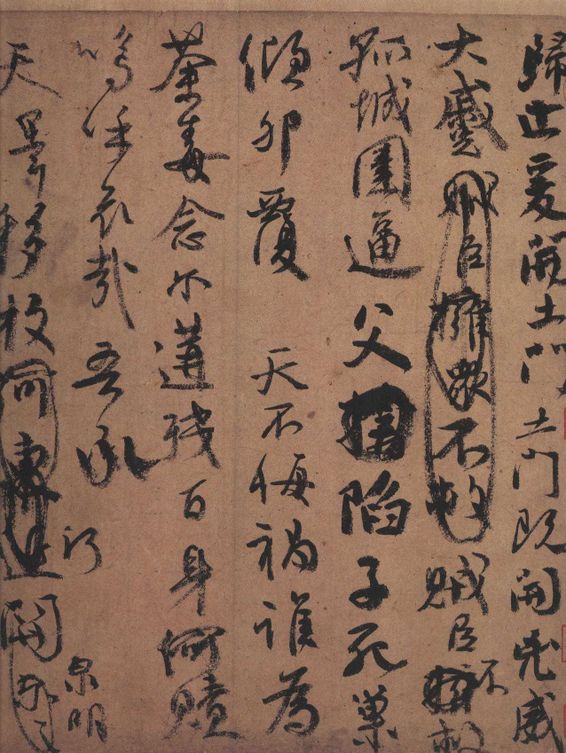 歸止爰開土門土門既開凶威
大蹙賊臣擁衆不救賊臣不救
孤城圍逼父陷子死巢
傾卵覆 天不悔禍誰為
荼毒念尔遘殘百身何贖
嗚呼哀哉吾承
泉明
天澤移牧河東近關